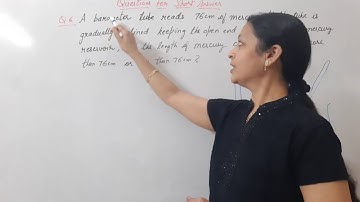 Questions For Short Answer
Q.6 A barometer tube reads 76cm of mercury tube is
gradually inclined keeping the open end mercury
reservoir, the length of mercury
than 76cm or than 76cm ?